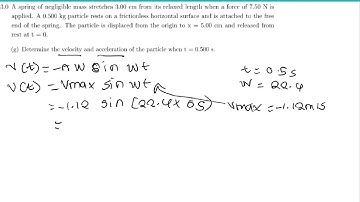 3.0 A spring of negligible mass stretches 3.00 cm from its relaxed length when a force of 7.50 N is
applied. A 0.500 kg particle rests on a frictionless horizontal surface and is attached to the free
end of the spring. The particle is displaced from the origin to x = 5.00 cm and released from
rest at t = 0.
(g) Determine the velocity and acceleration of the particle when t = 0.500 s.
v(t) = -A W sin wt
v(t) = Vmax sin wt
= -1.12 sin [22.4 x 0.5)
=
t = 0.5s
W = 22.4
Vmax = -1.12m/s